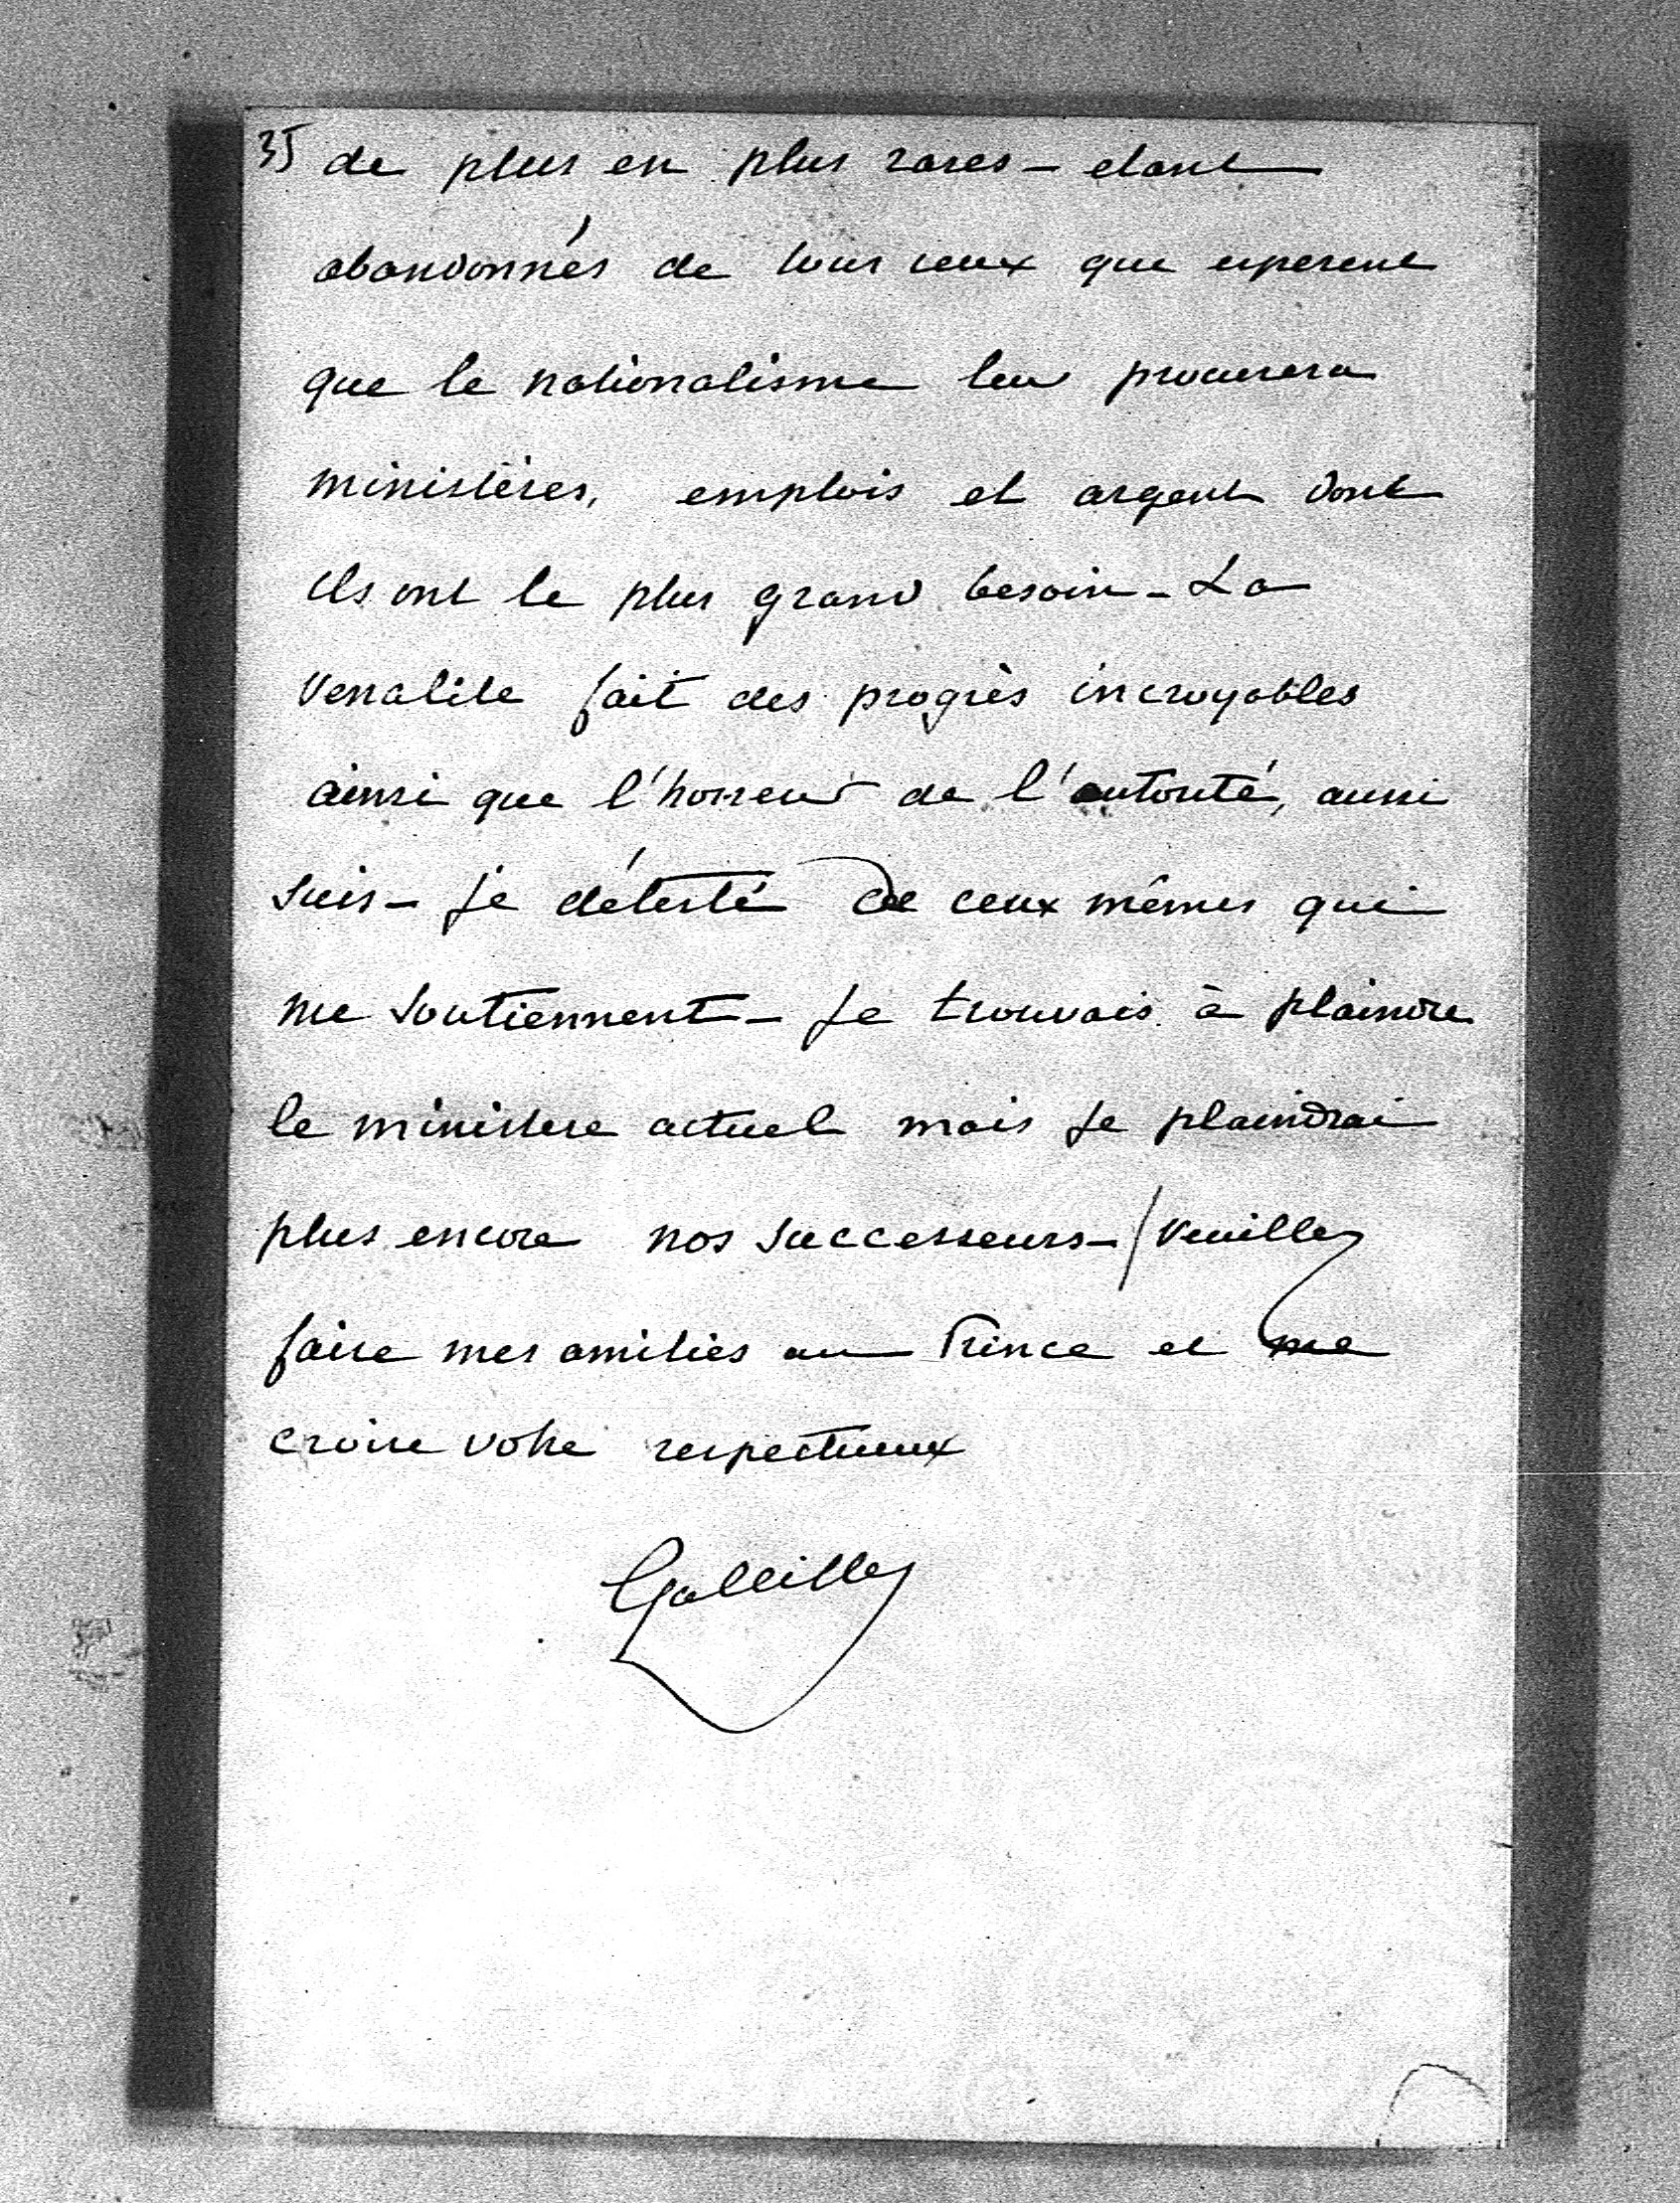 35 de plus en plus rares - etant
abandonnés de tous ceux que esperent
que le nationalisme leur procurera
ministères, emplois et argent dont
ils ont le plus grand besoin - La
venalite fait des progrès incroyables
ainsi que l'horreur de l'autorité, aussi
suis - je détesté de ceux mêmes qui
me soutiennent - Je trouvais à plaindre
le ministere actuel mais je plaindrai
plus encore nos successeurs - / Veuillez
faire mes amitiés au Prince et me
croire votre respectueux
Galliffet